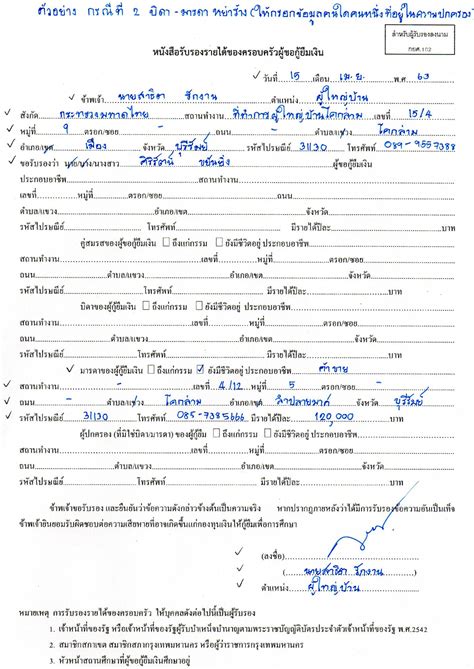 ตัวอย่าง กรณีที่ 2 บิดา-มารดา หย่าร้าง (ให้กรอกข้อมูลคนใดคนหนึ่งที่อยู่ในความปกครอง)
สำหรับผู้รับรองลงนาม
กยศ.102
หนังสือรับรองรายได้ของครอบครัวผู้ขอกู้ยืมเงิน
วันที่ 15 เดือน เม.ย. พ.ศ 63
ข้าพเจ้า นายสาธิต รักงาน ตำแหน่ง ผู้ใหญ่บ้าน
สังกัด กระทรวงมหาดไทย สถานที่ทำงาน ที่ทำการผู้ใหญ่บ้านโคกล่าม เลขที่ 15/4
หมู่ที่ 9 ตรอก/ซอย - ถนน - ตำบล/แขวง โคกล่าม
อำเภอ/เขต เมือง จังหวัด บุรีรัมย์ รหัสไปรษณีย์ 31130 โทรศัพท์ 089-9557388
ขอรับรองว่า นาย/นาง/นางสาว ศิริรัตน์ ขยันยิ่ง ผู้ขอกู้ยืมเงิน
ประกอบอาชีพ สถานที่ทำงาน
เลขที่ หมู่ที่ ตรอก/ซอย ถนน
ตำบล/แขวง อำเภอ/เขต จังหวัด
รหัสไปรษณีย์ โทรศัพท์ มีรายได้ปีละ บาท
คู่สมรสของผู้ขอกู้ยืมเงิน ☐ ถึงแก่กรรม ☐ ยังมีชีวิตอยู่ ประกอบอาชีพ
สถานที่ทำงาน เลขที่ หมู่ที่ ตรอก/ซอย
ถนน ตำบล/แขวง อำเภอ/เขต จังหวัด
รหัสไปรษณีย์ โทรศัพท์ มีรายได้ปีละ บาท
บิดาของผู้กู้ยืมเงิน ☐ ถึงแก่กรรม ☐ ยังมีชีวิตอยู่ ประกอบอาชีพ
สถานที่ทำงาน เลขที่ หมู่ที่ ตรอก/ซอย
ถนน ตำบล/แขวง อำเภอ/เขต จังหวัด
รหัสไปรษณีย์ โทรศัพท์ มีรายได้ปีละ บาท
มารดาของผู้กู้ยืมเงิน ☐ ถึงแก่กรรม ☑ ยังมีชีวิตอยู่ ประกอบอาชีพ ค้าขาย
สถานที่ทำงาน - เลขที่ 4/12 หมู่ที่ 5 ตรอก/ซอย -
ถนน - ตำบล/แขวง โคกล่าม อำเภอ/เขต ลำปลายมาศ จังหวัด บุรีรัมย์
รหัสไปรษณีย์ 31130 โทรศัพท์ 085-7385666 มีรายได้ปีละ 120,000 บาท
ผู้ปกครอง (ที่มิใช่บิดา/มารดา) ของผู้กู้ยืมเงิน ☐ ถึงแก่กรรม ☐ ยังมีชีวิตอยู่ ประกอบอาชีพ
สถานที่ทำงาน เลขที่ หมู่ที่ ตรอก/ซอย ถนน
ตำบล/แขวง อำเภอ/เขต จังหวัด
รหัสไปรษณีย์ โทรศัพท์ มีรายได้ปีละ บาท
ข้าพเจ้าขอรับรอง และยืนยันว่าข้อความดังกล่าวข้างต้นเป็นความจริง หากปรากฏภายหลังว่าได้มีการรับรองข้อความอันเป็นเท็จ
ข้าพเจ้ายินยอมรับผิดชอบต่อความเสียหายที่อาจเกิดขึ้นแก่กองทุนเงินให้กู้ยืมเพื่อการศึกษา
(ลงชื่อ)
(นายสาธิต รักงาน)
ตำแหน่ง ผู้ใหญ่บ้าน
หมายเหตุ การรับรองรายได้ของครอบครัว ให้บุคคลดังต่อไปนี้เป็นผู้รับรอง
1. เจ้าหน้าที่ของรัฐ หรือเจ้าหน้าที่ของรัฐผู้รับบำเหน็จบำนาญตามพระราชบัญญัติบัตรประจำตัวเจ้าหน้าที่ของรัฐ พ.ศ.2542
2. สมาชิกสภาเขต สมาชิกสภากรุงเทพมหานคร หรือผู้ว่าราชการกรุงเทพมหานคร
3. หัวหน้าสถานศึกษาที่ผู้ขอกู้ยืมเงินศึกษาอยู่